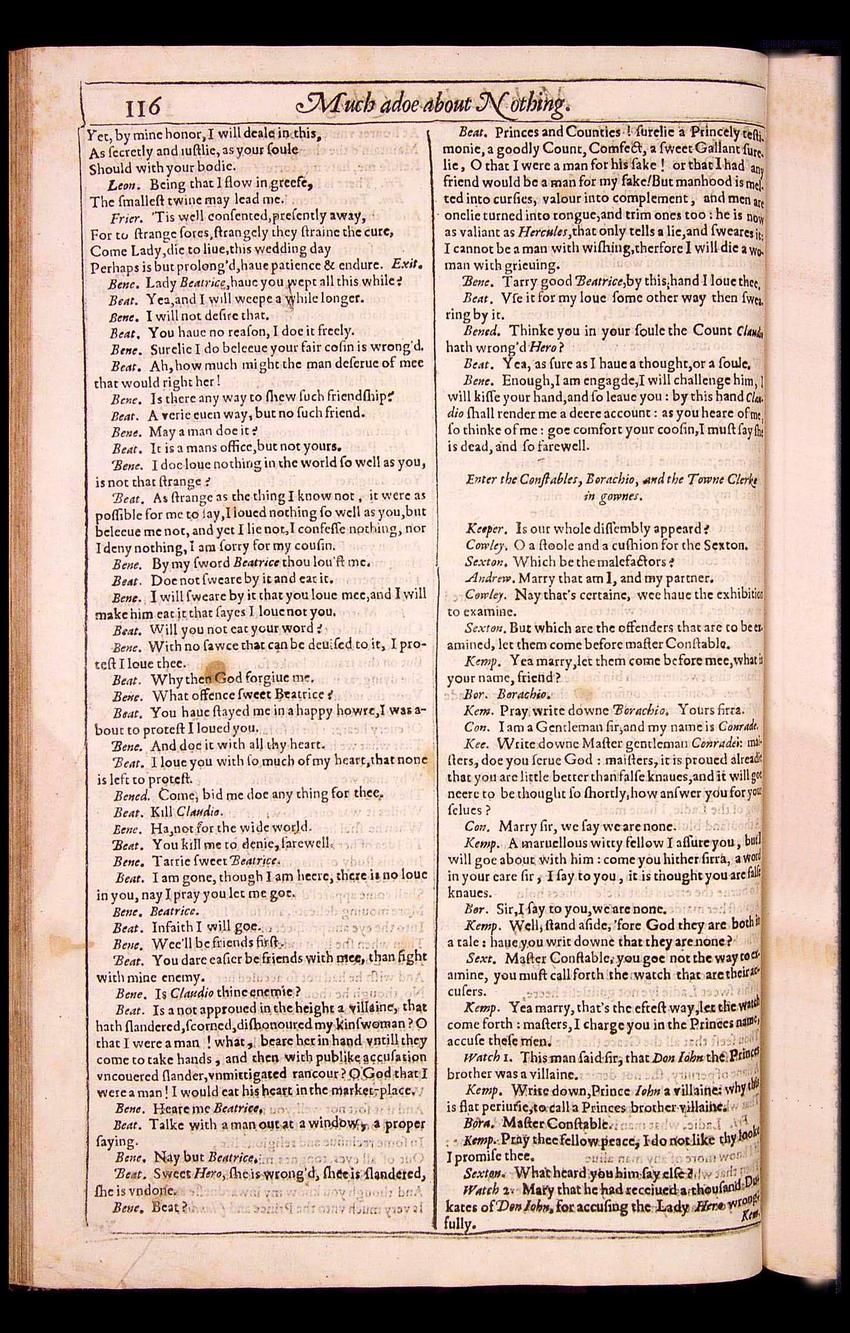 116
Much adoe about Nothing.
Yet, by mine honor, I will deale in this,
As secretly and iustlie, as your soule
Should with your bodie.
Leon. Being that I flow in greefe,
The smallest twine may lead me.
Frier. 'Tis well consented, presently away,
For to strange sores, strangely they straine the cure,
Come Lady, die to liue, this wedding day
Perhaps is but prolong'd, haue patience & endure. Exit.
Bene. Lady Beatrice, haue you wept all this while?
Beat. Yea, and I will weepe a while longer.
Bene. I will not desire that.
Beat. You haue no reason, I doe it freely.
Bene. Surelie I do beleeue your fair cosin is wrong'd.
Beat. Ah, how much might the man deserue of mee
that would right her!
Bene. Is there any way to shew such friendship?
Beat. A verie euen way, but no such friend.
Bene. May a man doe it?
Beat. It is a mans office, but not yours.
Bene. I doe loue nothing in the world so well as you,
is not that strange?
Beat. As strange as the thing I know not, it were as
possible for me to say, I loued nothing so well as you, but
beleeue me not, and yet I lie not, I confesse nothing, nor
I deny nothing, I am sorry for my cousin.
Bene. By my sword Beatrice thou lou'st me.
Beat. Doe not sweare by it and eat it.
Bene. I will sweare by it that you loue mee, and I will
make him eat it that sayes I loue not you.
Beat. Will you not eat your word?
Bene. With no sawce that can be deuised to it, I pro-
test I loue thee.
Beat. Why then God forgiue me.
Bene. What offence sweet Beatrice?
Beat. You haue stayed me in a happy howre, I was a-
bout to protest I loued you.
Bene. And doe it with all thy heart.
Beat. I loue you with so much of my heart, that none
is left to protest.
Bened. Come, bid me doe any thing for thee.
Beat. Kill Claudio.
Bene. Ha, not for the wide world.
Beat. You kill me to denie, farewell.
Bene. Tarrie sweet Beatrice.
Beat. I am gone, though I am heere, there is no loue
in you, nay I pray you let me goe.
Bene. Beatrice.
Beat. Infaith I will goe.
Bene. Wee'll be friends first.
Beat. You dare easier be friends with mee, than fight
with mine enemy.
Bene. Is Claudio thine enemie?
Beat. Is a not approued in the height a villaine, that
hath slandered, scorned, dishonoured my kinswoman? O
that I were a man! what, beare her in hand vntill they
come to take hands, and then with publike accusation
vncouered slander, vnmittigated rancour? O God that I
were a man! I would eat his heart in the market-place.
Bene. Heare me Beatrice.
Beat. Talke with a man out at a window, a proper
saying.
Bene. Nay but Beatrice.
Beat. Sweet Hero, she is wrong'd, shee is slandered,
she is vndone.
Bene. Beat?
Beat. Princes and Counties! surelie a Princely testi-
monie, a goodly Count, Comfect, a sweet Gallant sure-
lie, O that I were a man for his sake! or that I had any
friend would be a man for my sake! But manhood is mel-
ted into cursies, valour into complement, and men are
onelie turned into tongue, and trim ones too: he is now
as valiant as Hercules, that only tells a lie, and sweares it:
I cannot be a man with wishing, therfore I will die a wo-
man with grieuing.
Bene. Tarry good Beatrice, by this hand I loue thee.
Beat. Vse it for my loue some other way then swea-
ring by it.
Bened. Thinke you in your soule the Count Claudio
hath wrong'd Hero?
Beat. Yea, as sure as I haue a thought, or a soule.
Bene. Enough, I am engagde, I will challenge him, I
will kisse your hand, and so leaue you: by this hand Clau-
dio shall render me a deere account: as you heare of me,
so thinke of me: goe comfort your coosin, I must say she
is dead, and so farewell.
Enter the Constables, Borachio, and the Towne Clerke
in gownes.
Keeper. Is our whole dissembly appeard?
Cowley. O a stoole and a cushion for the Sexton.
Sexton. Which be the malefactors?
Andrew. Marry that am I, and my partner.
Cowley. Nay that's certaine, wee haue the exhibition
to examine.
Sexton. But which are the offenders that are to be ex-
amined, let them come before master Constable.
Kemp. Yea marry, let them come before mee, what is
your name, friend?
Bor. Borachio.
Kem. Pray write downe Borachio. Yours sirra.
Con. I am a Gentleman sir, and my name is Conrade.
Kee. Write downe Master gentleman Conrade: mai-
sters, doe you serue God: maisters, it is proued alreadie
that you are little better than false knaues, and it will goe
neere to be thought so shortly, how answer you for your
selues?
Con. Marry sir, we say we are none.
Kemp. A maruellous witty fellow I assure you, but I
will goe about with him: come you hither sirra, a word
in your eare sir, I say to you, it is thought you are false
knaues.
Bor. Sir, I say to you, we are none.
Kemp. Well, stand aside, 'fore God they are both in
a tale: haue you writ downe that they are none?
Sext. Master Constable, you goe not the way to ex-
amine, you must call forth the watch that are their ac-
cusers.
Kemp. Yea marry, that's the eftest way, let the watch
come forth: masters, I charge you in the Princes name,
accuse these men.
Watch 1. This man said sir, that Don Iohn the Princes
brother was a villaine.
Kemp. Write down, Prince Iohn a villaine: why this
is flat periurie, to call a Princes brother villaine.
Bora. Master Constable.
Kemp. Pray thee fellow peace, I do not like thy looke
I promise thee.
Sexton. What heard you him say else?
Watch 2. Mary that he had receiued a thousand Du-
kates of Don Iohn, for accusing the Lady Hero wrong-
fully.
Kem.